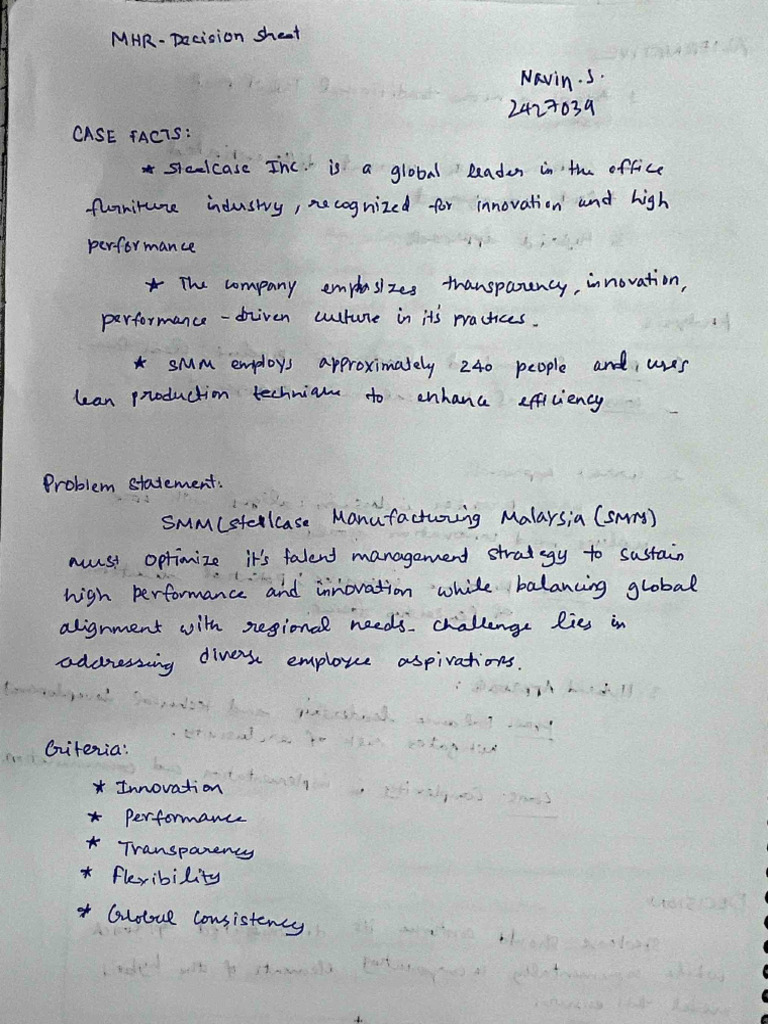 MHR - Decision Sheet
Navin.S.
2427039
CASE FACTS:
* Steelcase Inc. is a global leader in the office
furniture industry, recognized for innovation and high
performance
* The company emphasizes transparency, innovation,
performance - driven culture in it's practices.
* SMM employs approximately 240 people and uses
lean production technique to enhance efficiency
Problem Statement:
SMM (Steelcase Manufacturing Malaysia (SMM)
must optimize it's talent management strategy to sustain
high performance and innovation while balancing global
alignment with regional needs. challenge lies in
addressing diverse employee aspirations.
Criteria:
* Innovation
* Performance
* Transparency
* Flexibility
* Global Consistency